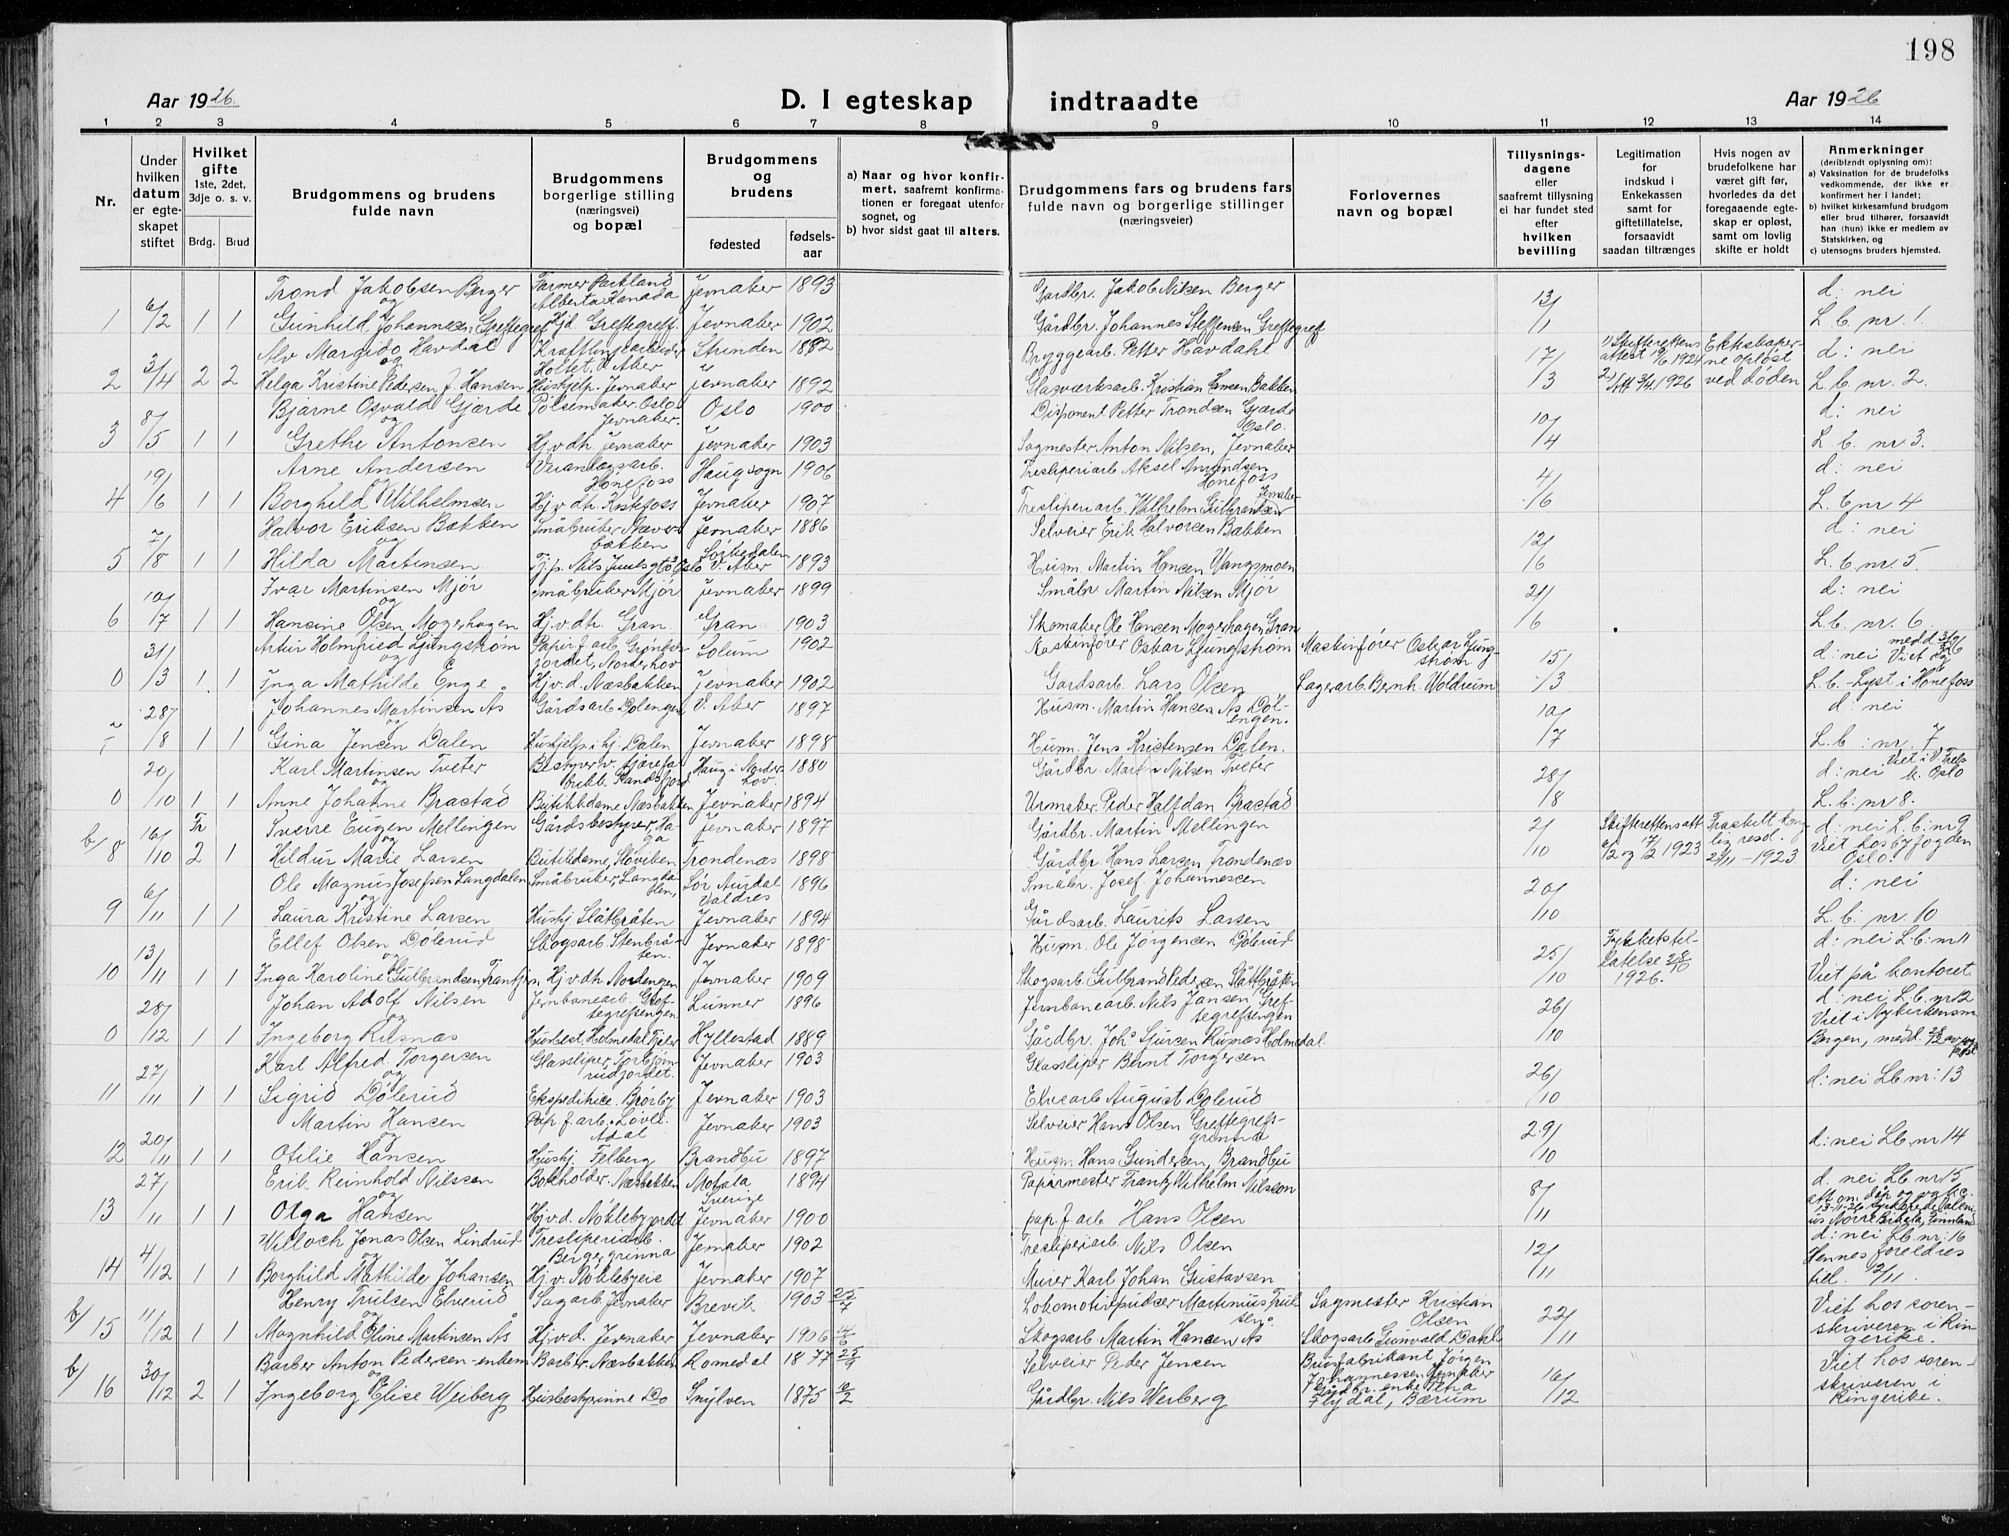 198
Aar 1926.
D. I egteskap indtraadte
Aar 1926
1 2 3 4 5 6 7 8 9 10 11 12 13 14
Nr.
Under hvilken datum er egteskapet stiftet
Hvilket gifte 1ste, 2det, 3dje o. s. v.
Brdg. Brud
Brudgommens og brudens fulde navn
Brudgommens borgerlige stilling (næringsvei) og bopæl
Brudgommens og brudens
fødested fødsels-aar
a) Naar og hvor konfirmert, saafremt konfirmationen er foregaat utenfor sognet, og
b) hvor sidst gaat til alters.
Brudgommens fars og brudens fars fulde navn og borgerlige stillinger (næringsveier)
Forlovernes navn og bopæl
Tillysningsdagene eller saafremt tillysning ei har fundet sted efter hvilken bevilling
Legitimation for indskud i Enkekassen samt for giftetillatelse, forsaavidt saadan tiltrænges
Hvis nogen av brudefolkene har været gift før, hvorledes da det foregaaende egteskap er opløst, samt om lovlig skifte er holdt
Anmerkninger (deriblendt oplysning om):
a) Vaksination for de brudefolks vedkommende, der ikke er konfirmert her i landet;
b) hvilket kirkesamfund brudgom eller brud tilhører, forsaavidt han (hun) ikke er medlem av Statskirken, og
c) utensogns bruders hjemsted.
Trond Jakobsen Berger Farmer Parkland Alberta Kanada Jevnaker 1893 Gardbr. Jakob Nilsen Berger 13/1 d: nei
1 6/2 1 1 og Gunhild Johannesen Greftegref Hjd Greftegreff. Jevnaker 1902 Gårdbr. Johannes Steffensen Greftegreff L.b. nr. 1.
Alv Margido Havdal Kraftlinjearbeider Holtet, Ø Aker Strinden 1882 Bryggearb. Petter Havdahl 17/3 1) Skifterettens attest 1924 Ekteskaperne opløst ved døden d: nei
2 3/4 2 2 og Helga Kristine Pedersen f. Hansen Hushjelp. Jevnaker Jevnaker 1892 Glasværksarb. Kristian Hansen Bakken 2) Att 3/4 1926 L.b. nr. 2.
Bjarne Osvald Gjærde Pølsemaker Oslo Oslo 1900 Disponent Petter Trondsen Gjærde Oslo. 10/4 d: nei
3 8/5 1 1 og Grethe Antonsen Hjvdh Jevnaker Jevnaker 1903 Sagmester Anton Nilsen, Jevnaker L.b. nr 3.
Arne Andersen Hønefoss Haug sogn 1906 Tresliperiarb Aksel Amundsen Hønefoss 4/6 d: nei
4 19/6 1 1 og Borghild Wilhelmsen Hj.v.dh. Kistefoss Jevnaker 1907 Tresliperiarb. Wilhelm Gulbrandsen Jevnaker L.b nr 4
Halvor Eriksen Bakken Småbruker Jevnaker 1886 Selveier Erik Halvorsen Bakken 12/6 d: nei
5 7/8 1 1 og Hilda Martinsen Tj.p. Nils Juuls gt Oslo Sørkedalen V. Aker 1893 Husm. Martin Hansen Vangsmoen L.b. nr. 5.
Ivar Martinsen Mjør Småbruker Mjør Jevnaker 1899 Småbr Martin Nilsen Mjør 21/6 d: nei
6 10/7 1 1 og Hansine Olsen Mogerhagen Hj.v.dh. Gran Gran 1903 Skomaker Ole Hansen Mogerhagen Gran L.b. nr. 6.
Artur Holmfred Ljungstrøm Papirf.arb. Norderhov Solum 1902 Maskinfører Oskar Ljungstrøm Maskinfører Oskar Ljungstrøm 15/3 d: nei Viet
0 31/3 1 1 og Inga Mathilde Enge Hjv.d. Næsbakken Jevnaker 1902 Gardsarb. Lars Olsen Lagerarb. Bernh. Woldrum L.b. - Lyst i Hønefoss
Johannes Martinsen As Gårdsarb Dølengen V. Aker 1897 Husm. Martin Hansen As Dølengen. 10/7 d: nei
7 28/8 1 1 og Gina Jensen Dalen Hushjelp i hj. Dalen Jevnaker 1898 Husm. Jens Kristensen Dalen. L.b: nr. 7
Karl Martinsen Tveter Bestyrer v. Haug i Norderhov 1880 Gårdbr. Martin Nilsen Tveter 28/8 d: nei Viet i V. Oslo
0 20/10 1 1 og Anne Johanne Brastad Butikkdame Næsbakken Jevnaker 1894 Urmaker Peder Halfdan Brastad L.b: nr 8.
Sverre Eugen Mellengen Gårdsbestyrer, Haga Jevnaker 1897 Gårdbr. Martin Mellingen 2/10 Skifterettens att 1923 Fraskilt 1923 d: nei L.b: nr 9
b/8 16/10 Fr 2 1 og Hildur Marie Larsen Butikdame, Trondenæs 1898 Gårdbr. Hans Larsen Trondenæs Viet hos byfogden Oslo.
Ole Magnus Josefsen Langdalen Småbruker, Langdalen, Sør Aurdal Valdres 1896 Småbr. Josef Johannessen 20/10 d: nei
9 6/11 1 1 og Laura Kristine Larsen Hushj Slåtbråten Jevnaker 1894 Gårdsarb. Laurits Larsen L.b. nr. 10
Ellef Olsen Dølerud Skogsarb Stenbråten. Jevnaker 1898 Husm. Ole Jørgensen Dølerud 25/10 1926. d: nei L.b: nr 11
10 13/11 1 1 og Inga Karoline Gulbrandsen Hjvdh Nordengen Jevnaker 1909 Skogsarb. Gulbrand Pedersen Slåttbråten Viet på kontoret
Johan Adolf Nilsen Jernbanearb. Greftegrefsengen Lunner 1896 Jernbanearb. Nils Jansen Greftegrefsengen 26/10 d: nei L.b. nr 12
0 28/12 1 1 og Ingeborg Rusnæs Husbest. Holmedal Fjaler Hyllestad 1889 Gårdbr. Joh. Sjursen Rusnæs Holmedal Viet i Nykirken Bergen,
Karl Alfred Torgersen Glassliper, Torbjørnrudjordet. Jevnaker 1903 Glassliper Bernt Torgersen 26/10 d: nei Lb nr: 13
11 27/11 1 1 og Sigrid Dølerud Ekspeditrice. Brørby Jevnaker 1903 Elvearb August Dølerud
Martin Hansen Pap.f.arb. Adal Jevnaker 1903 Selveier Hans Olsen Greftegrefsgrinna 29/10 d: nei Lb nr 14
12 20/11 1 1 og Otilie Hansen Hushj Felberg Brandbu 1897 Husm. Hans Gundersen, Brandbu
Erik Reinhold Nilsson Bokholder, Næsbakken Motala Sverige 1894 Papirmester Frantz Wilhelm Nilsson 8/11 d. nei Lb nr 15
13 27/11 1 1 og Olga Hansen Hjv.d. Nøklebyjordet Jevnaker 1900 pap.f.arb Hans Olsen
Willoch Jonas Olsen Lindrud Tresliperiarb. Bergergrinna Jevnaker 1902 Tresliperiarb Nils Olsen 12/11 d: nei Lb nr: 16
14 4/12 1 1 og Borghild Mathilde Johansen Hj.v. Nøklebyeie Jevnaker 1907 Murer Karl Johan Gustavsen Hennes foreldres till. 12/11.
Henry Trulsen Elverud Sagarb Jevnaker Brevik 1903 25/7 Lokomotivpudser Martinius Trulsen. Sagmester Kristian Olsen 22/11 Viet hos sorenskriveren i Ringerike.
b/15 11/12 1 1 og Magnhild Eline Martinsen As Hjv.d. Jevnaker Jevnaker 1906 Skogsarb Martin Hansen As Skogsarb Gunvald Dahl
Barber Anton Pedersen - enkem Barber Næsbakken Romedal 1877 25/9 Selveier Peder Jensen Brusfabrikant Jørgen Johannessen Jevnaker 16/12 Viet hos sorenskriveren i Ringerike.
b/16 30/12 2 1 og Ingeborg Elise Weiberg Husbestyrinne Do 1875 Gårdbr. Nils Weiberg Gårdbr. enke Flydal, Bærum